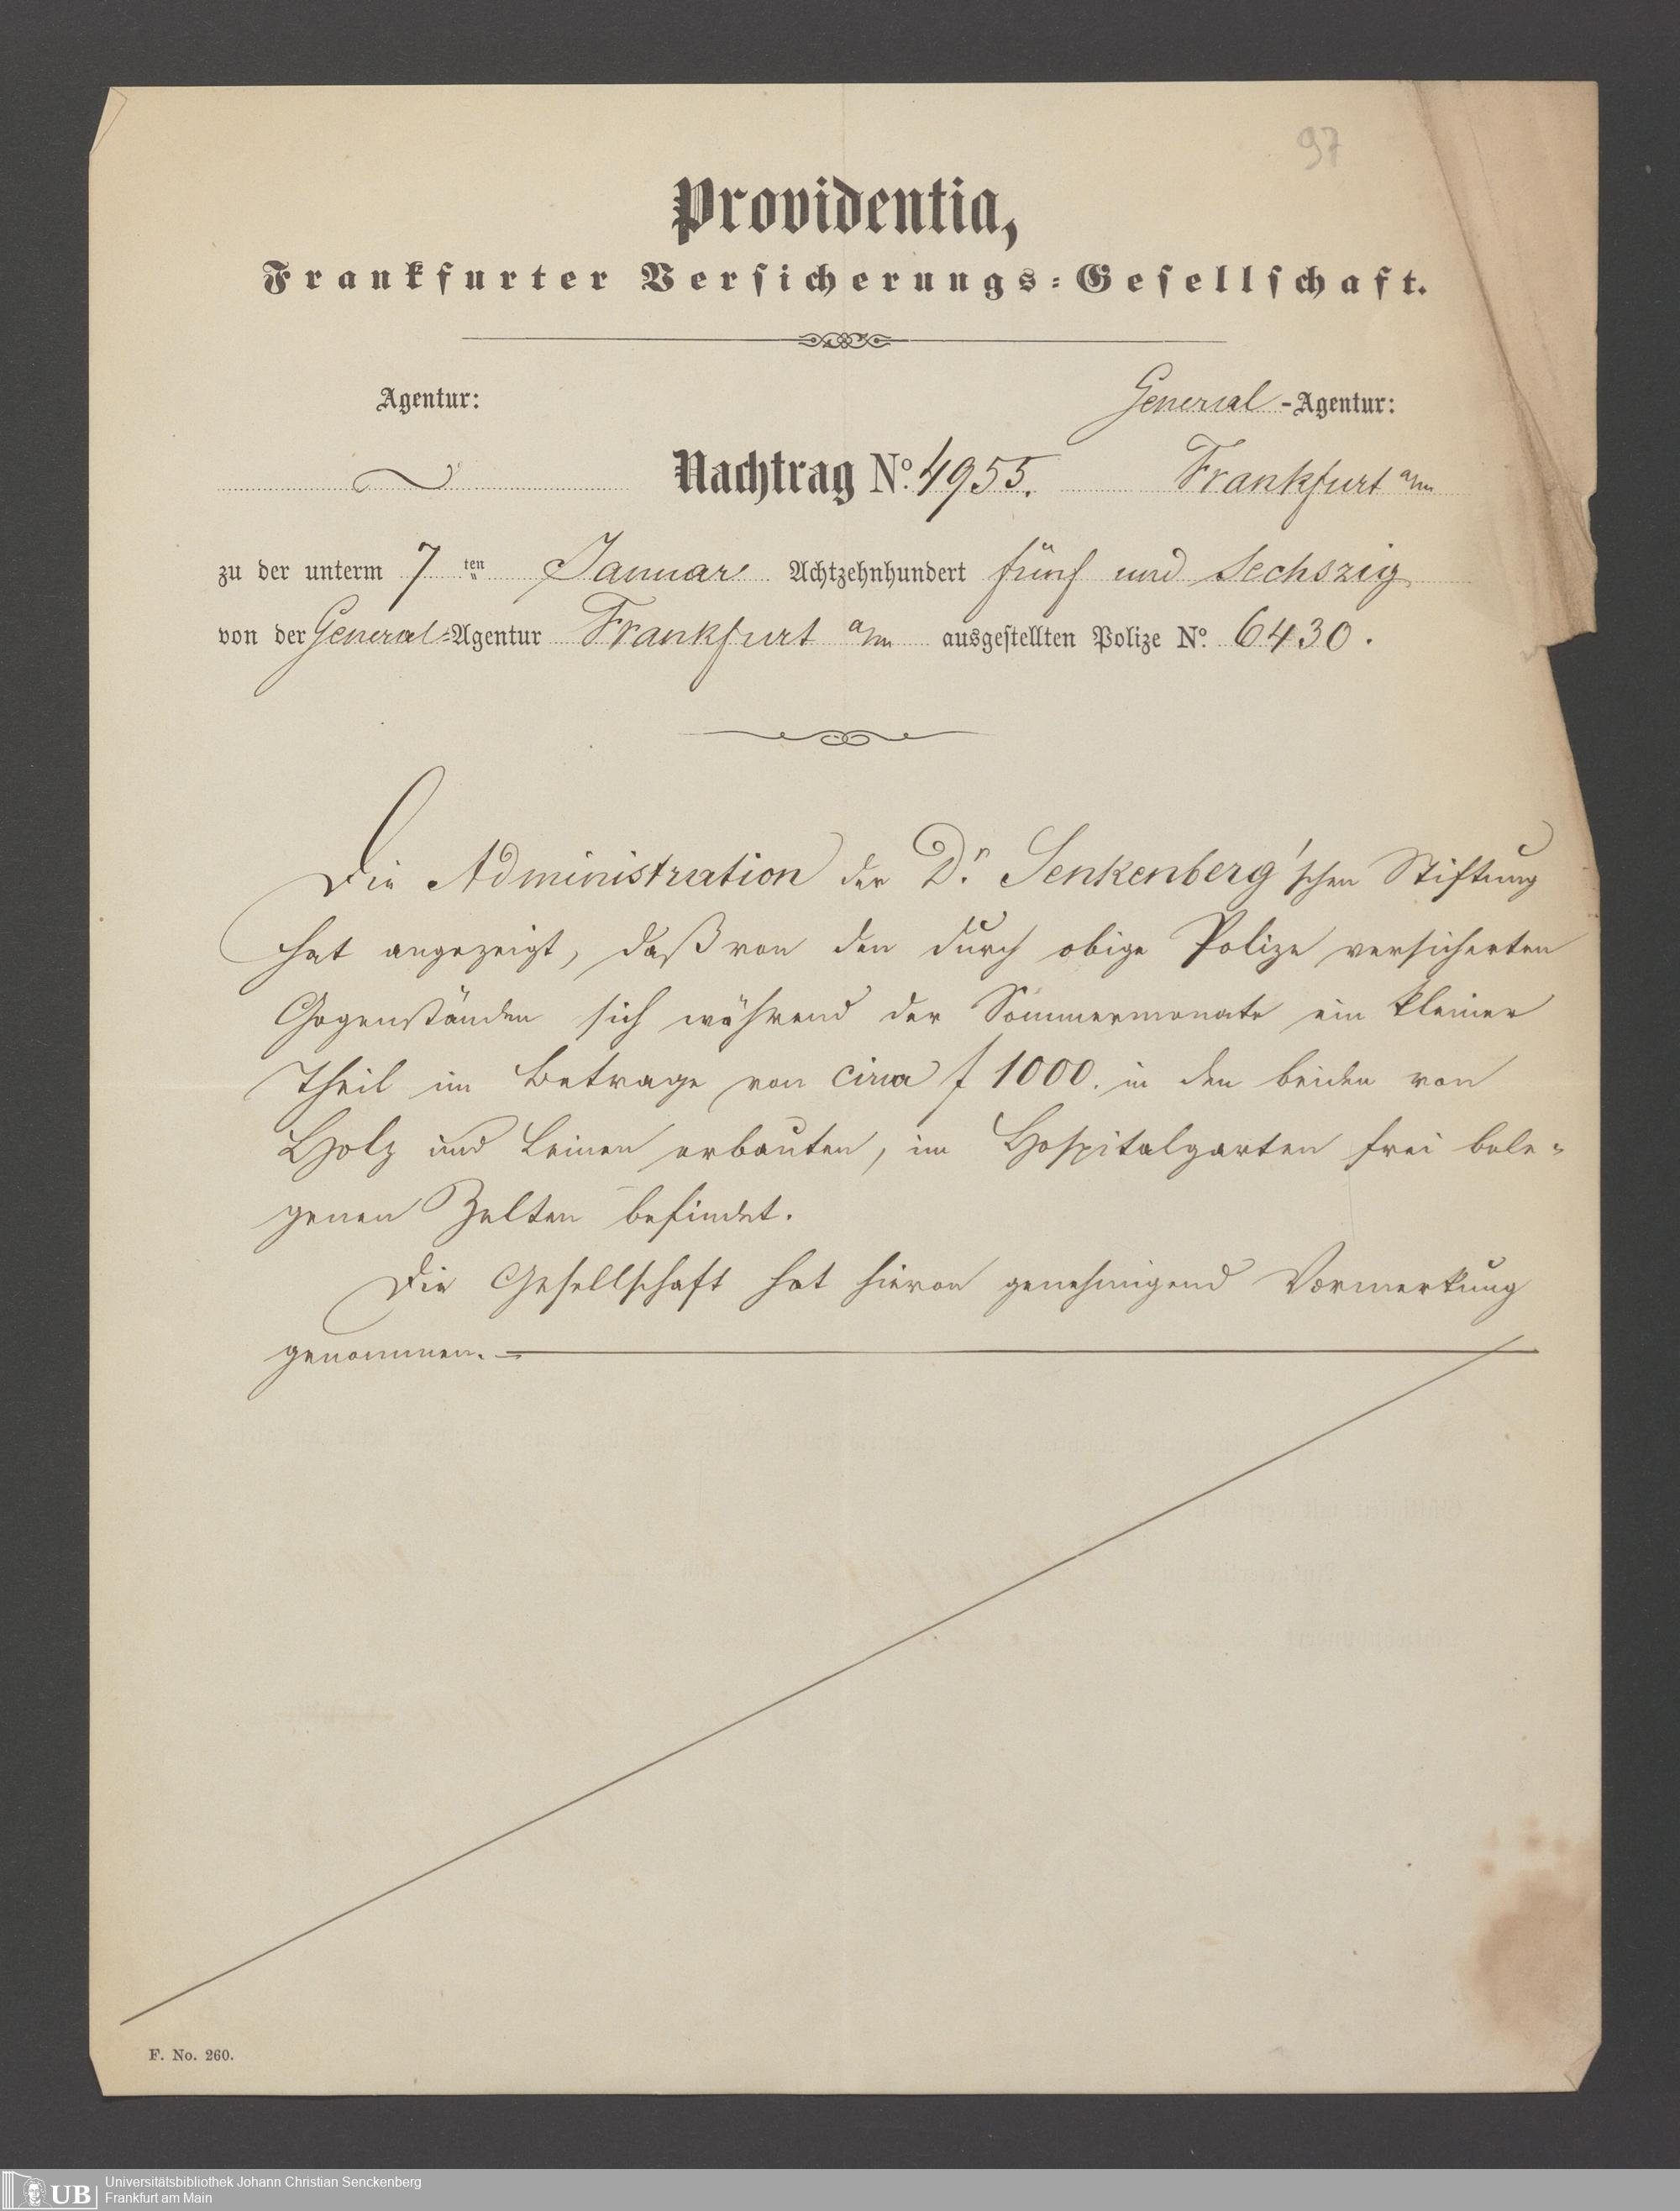 97
Providentia,
Frankfurter Versicherungs-Gesellschaft.
Agentur:
General-Agentur:
Nachtrag No. 4955.
Frankfurt a/m
zu der unterm 7ten Januar Achtzehnhundert fünf und Sechszig
von der General-Agentur Frankfurt a/m ausgestellten Polize No. 6430.
Die Administration der Dr. Senkenberg'schen Stiftung
hat angezeigt, daß von den durch obige Polize versicherten
Gegenständen sich während der Sommermonate ein kleiner
Theil im Betrage von circa f 1000. in den beiden von
Holz und Leinen erbauten, im Hospitalgarten frei bele-
genen Zelten befindet.
Die Gesellschaft hat hievon genehmigend Vormerkung
genommen.
F. No. 260.
UB
Universitätsbibliothek Johann Christian Senckenberg
Frankfurt am Main